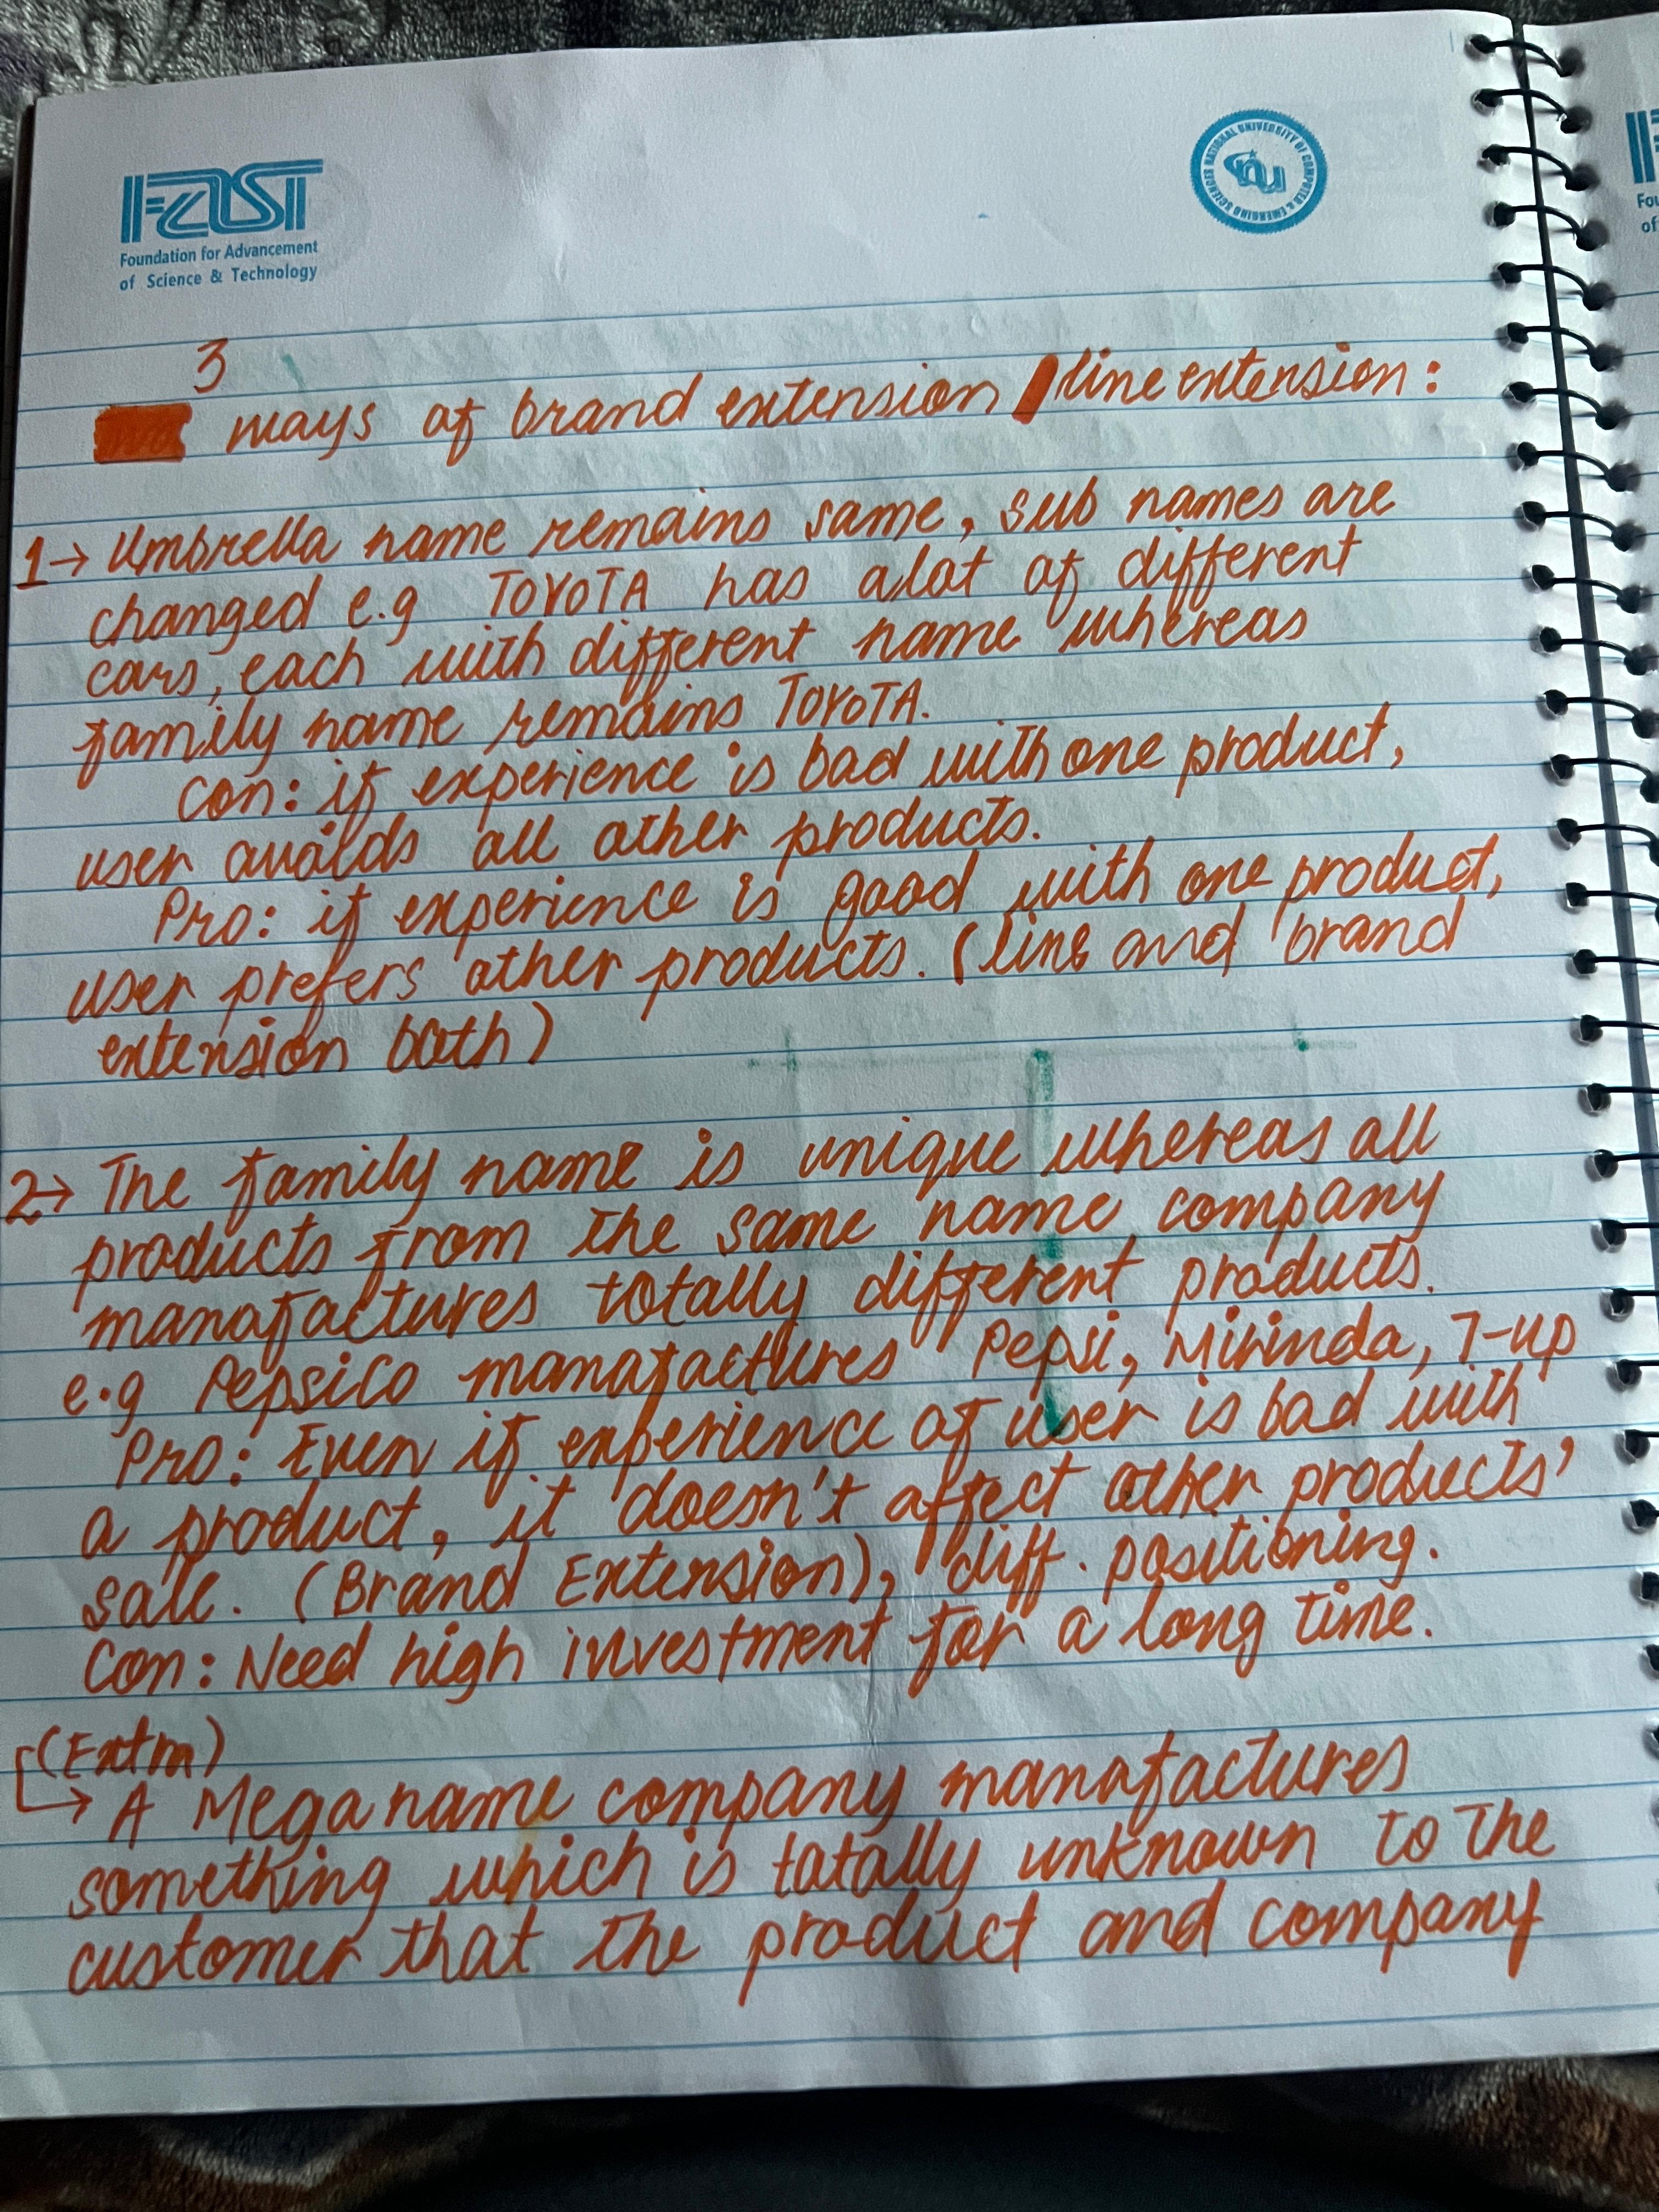 FAST
Foundation for Advancement
of Science & Technology
NATIONAL UNIVERSITY OF COMPUTER & EMERGING SCIENCES
nu
3
ways of brand extension / line extension:
1→ Umbrella name remains same, sub names are
changed e.g TOYOTA has alot of different
cars, each with different name whereas
family name remains TOYOTA.
Con: if experience is bad with one product,
user avoids all other products.
Pro: if experience is good with one product,
user prefers other products. (line and brand
extension both)
2→ The family name is unique whereas all
products from the same name company
manafactures totally different products.
e.g PepsiCo manafactures Pepsi, Mirinda, 7-up
Pro: Even if experience of user is bad with
a product, it doesn't affect other products'
sale. (Brand Extension), diff. positioning.
Con: Need high investment for a long time.
(Extra)
→ A Mega name company manafactures
something which is totally unknown to the
customer that the product and company